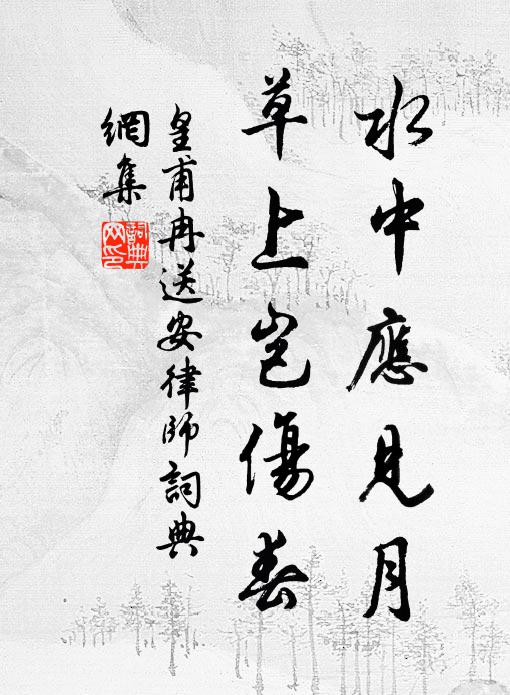 水中應見月
草上岂傷春
皇甫冉送安律師詞典
網集
詞典
网印